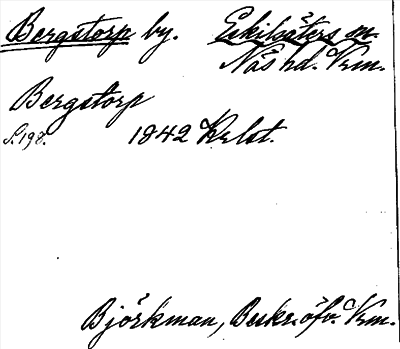 Bergstorp by. Eskilsäters sn.
Näs hd. Vrm.
Bergstorp
S. 198. 1842 Krbst.
Björkman, Beskr. öfv. Vrm.